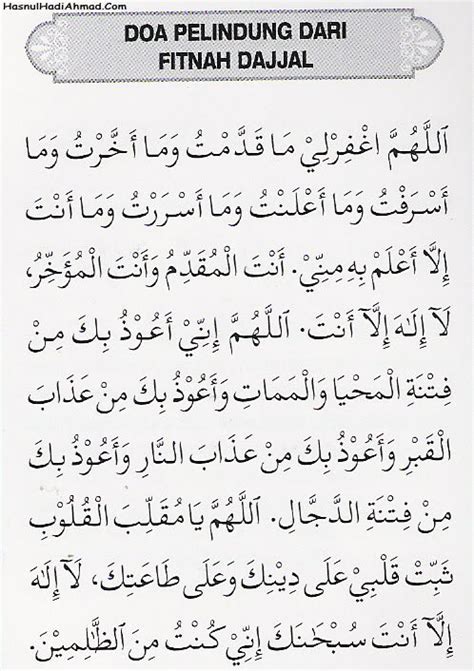 HasnulHadiAhmad.Com
DOA PELINDUNG DARI
FITNAH DAJJAL
اَللَّهُمَّ اغْفِرْلِيْ مَا قَدَّمْتُ وَمَا أَخَّرْتُ وَمَا
أَسْرَفْتُ وَمَا أَعْلَنْتُ وَمَا أَسْرَرْتُ وَمَا أَنْتَ
إِلاَّ أَعْلَمُ بِهِ مِنِّيْ. أَنْتَ الْمُقَدِّمُ وَأَنْتَ الْمُؤَخِّرُ،
لَآ إِلَهَ إِلَّآ أَنْتَ. اَللَّهُمَّ إِنِّيْ أَعُوْذُ بِكَ مِنْ
فِتْنَةِ الْمَحْيَا وَالْمَمَاتِ وَأَعُوْذُ بِكَ مِنْ عَذَابَ
الْقَبْرِ وَأَعُوْذُ بِكَ مِنْ عَذَابَ النَّارِ وَأَعُوْذُ بِكَ
مِنْ فِتْنَةِ الدَّجَّالِ. اَللَّهُمَّ يَا مُقَلِّبَ الْقُلُوْبِ
ثَبِّتْ قَلْبِيْ عَلَى دِيْنِكَ وَعَلَى طَاعَتِكَ، لَآ إِلَهَ
إِلَّآ أَنْتَ سُبْحَنَكَ إِنِّيْ كُنْتُ مِنَ الظَّالِمِيْنَ.